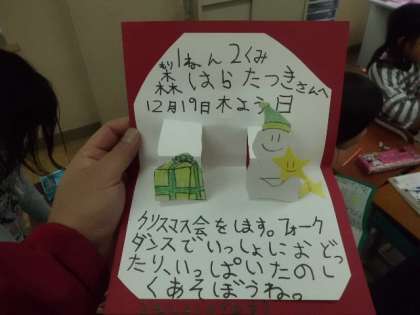 1ねん2くみ
森はらたつきさんへ
12月19日木よう日
クリスマス会をします。フォーク
ダンスでいっしょにおどっ
たり、いっぱいたのし
くあそぼうね。